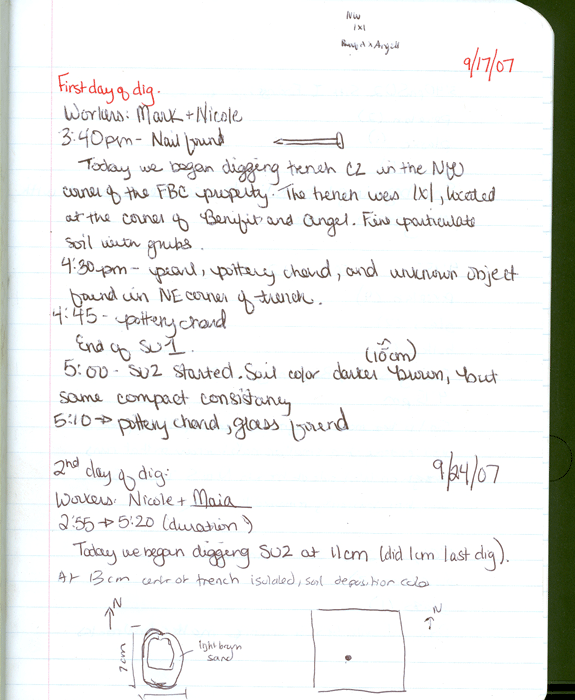 NW
1x1
9/17/07
First day of dig.
Workers: Mark + Nicole
3:40pm - Nail found
Today we began digging trench C2 in the NW
corner of the FBC property. The trench was 1X1, located
at the corner of Benifit and Angel. Fine particulate
soil with grubs.
4:30pm - pearl, pottery chard, and unknown object
found in NE corner of trench.
4:45 - pottery chard
End of SU1.
(10cm)
5:00 - SU2 started. Soil color darker brown, but
same compact consistancy
5:10 → pottery chard, glass found
2nd day of dig:
9/24/07
Workers: Nicole + Maia
2:55 → 5:20 (duration)
Today we began digging SU2 at 11cm (did 1cm last dig).
At 13cm center of trench isolated, soil deposition color
N
N
light brown
sand
7cm